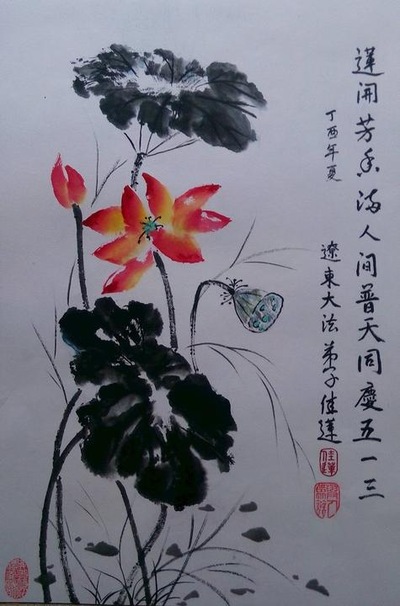 蓮開芳香滿人間普天同慶五一三
丁酉年夏
遼東大法弟子佳蓮
佳蓮